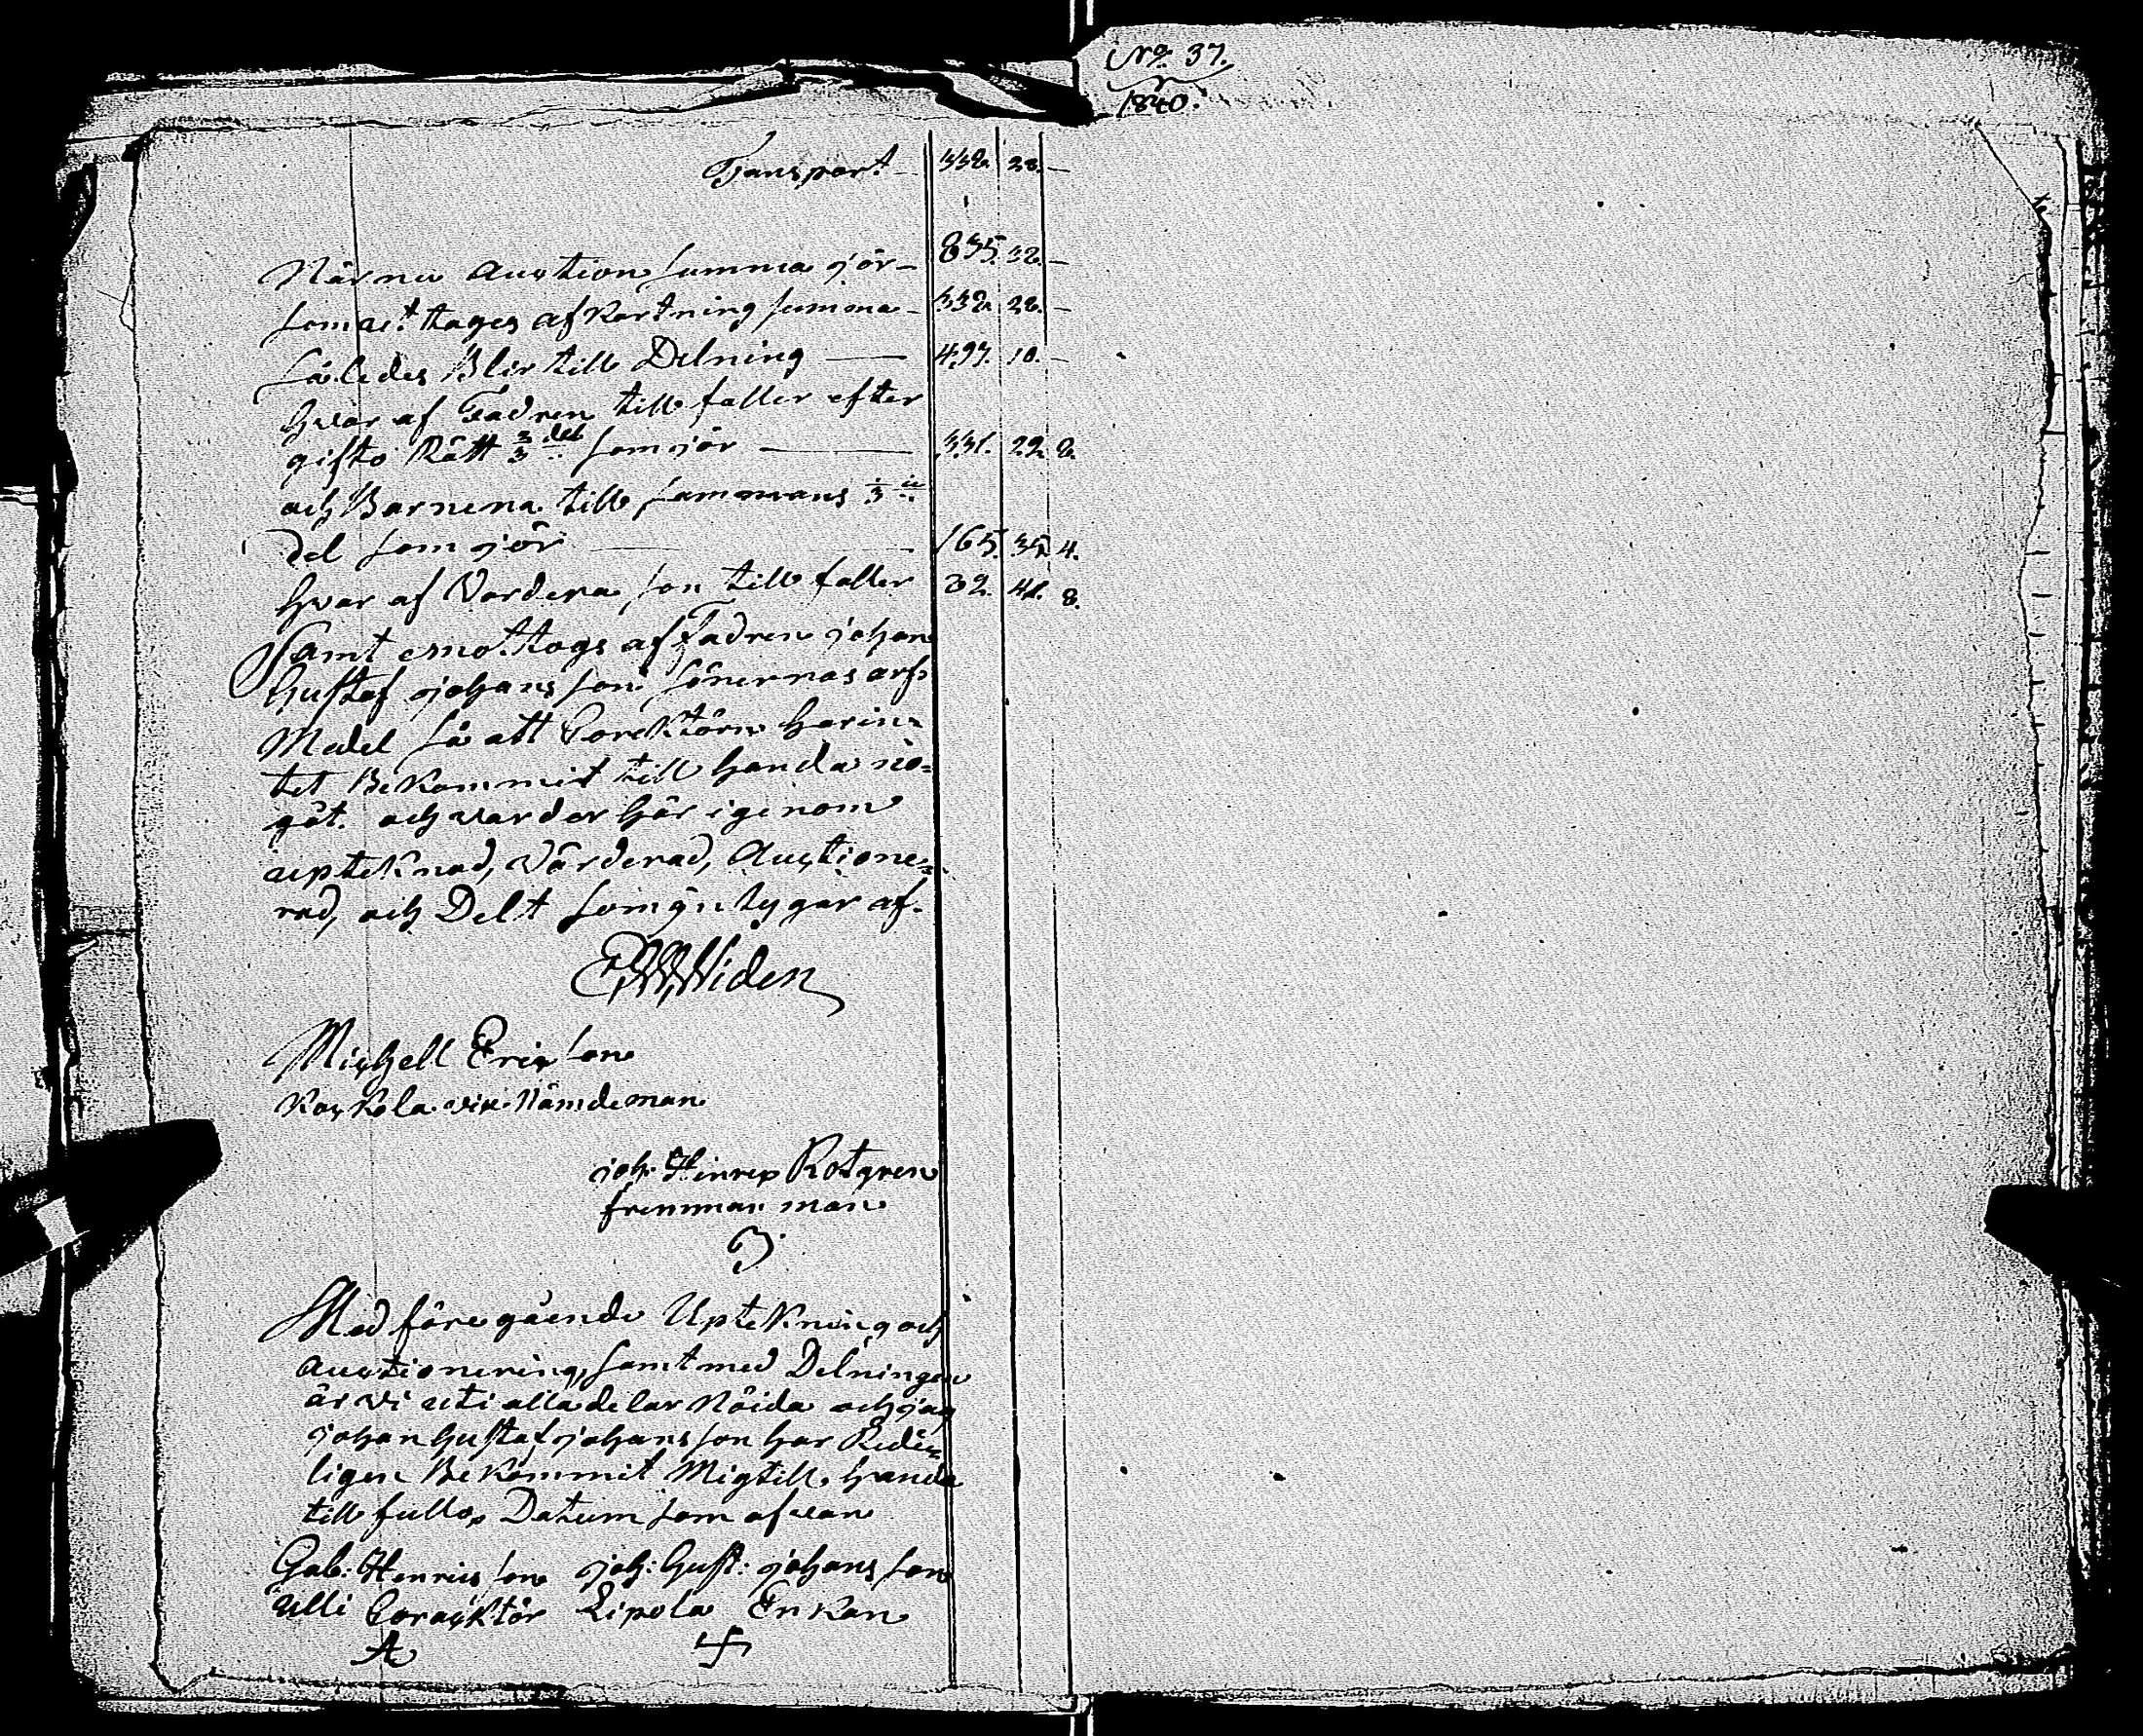 Transport — 338. 22. —
När nu Auxtion summa gör — 835. 32. —
som aft tages afkortning summa — 338. 22. —
således Blir till Delning — 497. 10. —
hvar af Fadren till faller efter
gifto Rätt 2/3 del som gör — 331. 22. 8.
och Barnena till sammans 1/3
del som gör — 165. 35. 4.
hvar af Vardera son till faller 41. 8.
Samt emottogs af Fadren johan
Gustaf johans son sönernas arfs
Medel så att Corektörn har in=
tet Bekommit till handa nå=
got. och varder här igenom
upteknad, Värderad, Auxtione=
rad, och Delt som gutygar af.
Widen
Mixhell Erixson
Koxkola vise Nämdeman
joh: Hinrex Rotgren
fremman man
Med före gående Uptekning och
auxtionering, samt med Delningen
är vi uti alla delar Nöida och jag
johan Gustaf johans son har Redè=
ligen Bekommit Mig till handa
till fullo, Datum som ofvan
Gab: Henrics son joh: Gust: johans son
Ulli Coraxktör Lipola Enkan
No. 37.
1840.